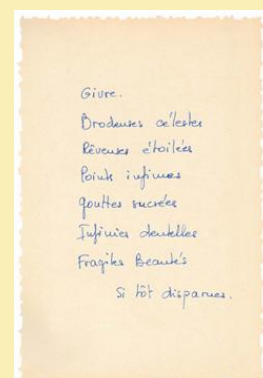 Givre.
Brodeuses célestes
Rêveuses étoilées
Points infimes
gouttes sucrées
Infinies dentelles
Fragiles Beautés
Si tôt disparues.